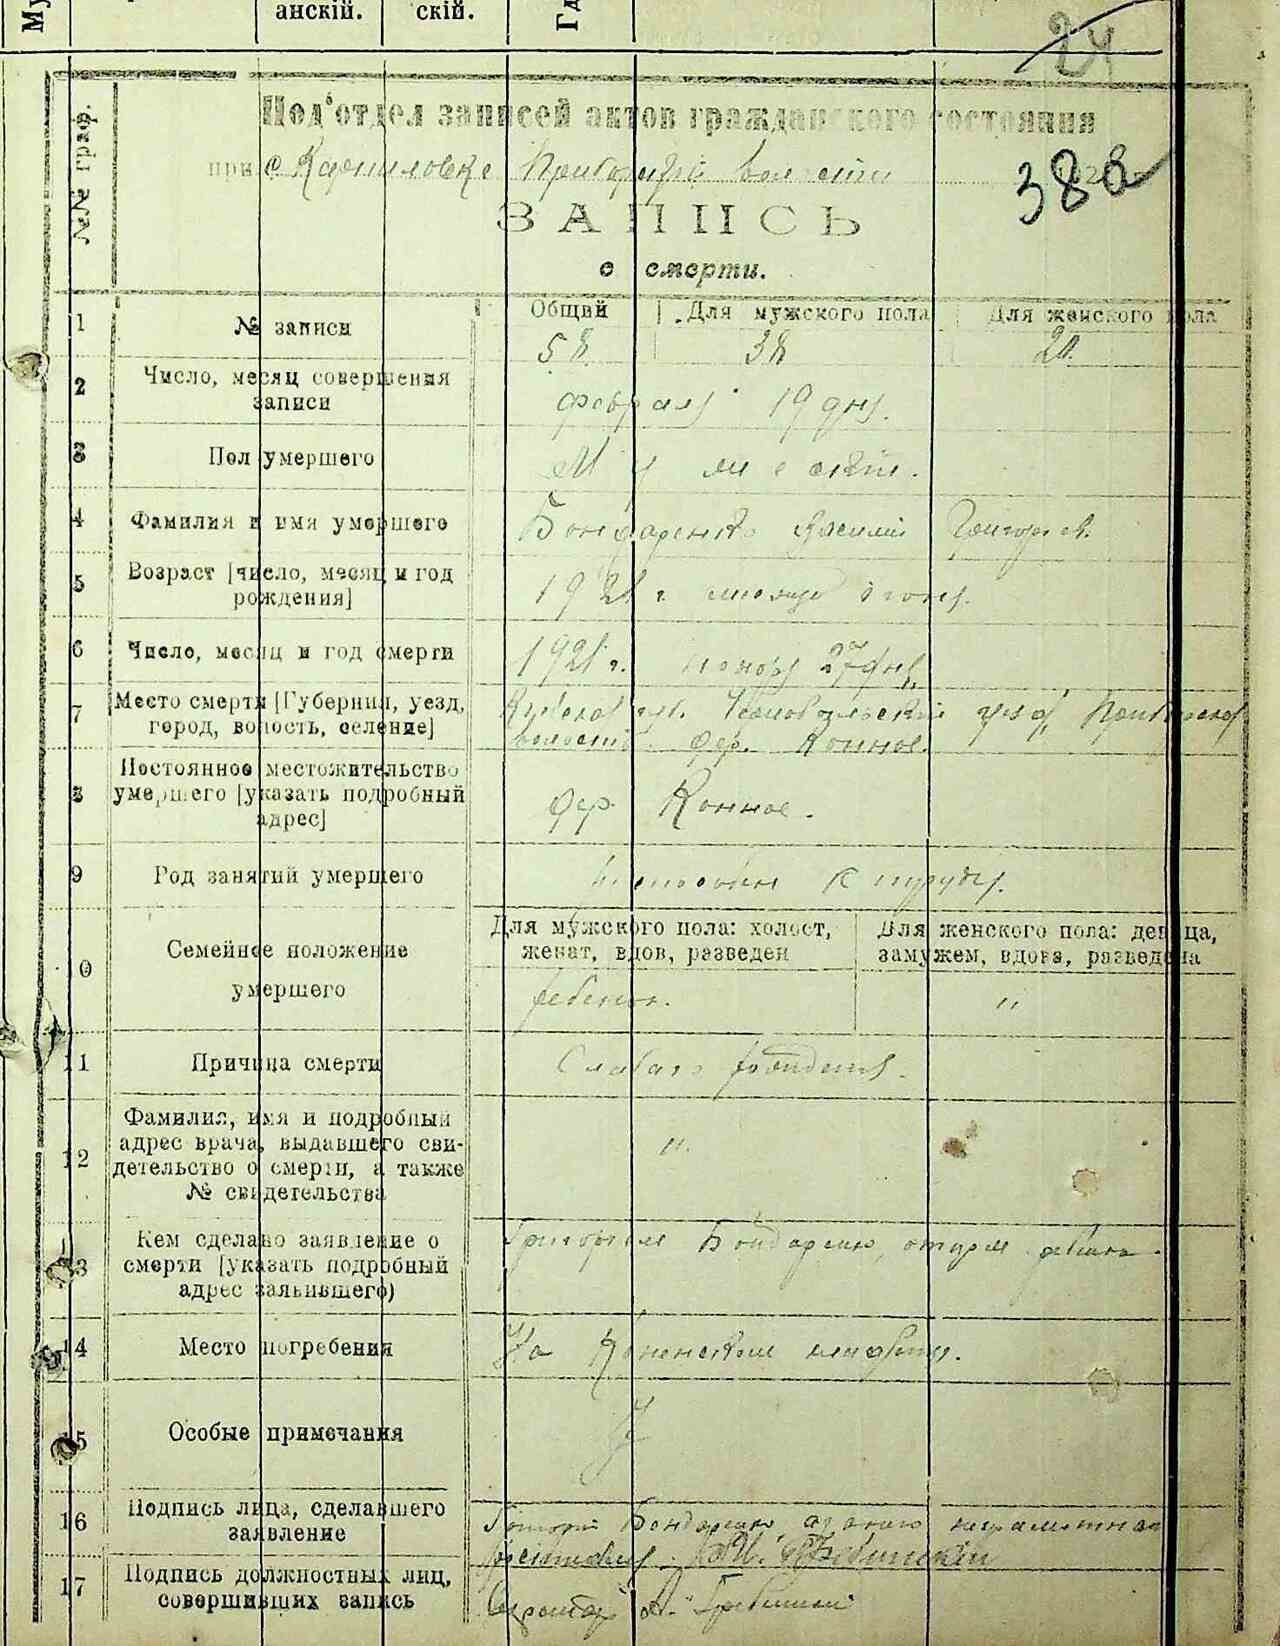 Му
анскій.
скій.
Гд
24
№№ граф.
Под'отдел записей актов гражданского состояния
при с Кармиловке волости 192
388
ЗАПИСЬ
о смерти.
1 № записи
Общий Для мужского пола Для женского пола
58 38 20
2 Число, месяц совершения записи
Февраля 19 дня.
3 Пол умершего
Мужеский.
4 Фамилия и имя умершего
Бондаренко Василий Григорьев.
5 Возраст [число, месяц и год рождения]
1921 г месяца
6 Число, месяц и год смерти
1921 г. 27 дня
7 Место смерти [Губерния, уезд, город, волость, селение]
губ. уезда,
волости дер. Конное.
8 Постоянное местожительство умершего [указать подробный адрес]
дер. Конное.
9 Род занятий умершего
к труду.
10 Семейное положение умершего
Для мужского пола: холост, женат, вдов, разведен
Для женского пола: девица, замужем, вдова, разведена
ребенок. "
11 Причина смерти
Слабаго рождения.
12 Фамилия, имя и подробный адрес врача, выдавшего свидетельство о смерти, а также № свидетельства
".
13 Кем сделано заявление о смерти [указать подробный адрес заявившего)
Григорием Бондаренко, отцом
14 Место погребения
На Коненском кладбищ.
15 Особые примечания
16 Подпись лица, сделавшего заявление
Григорий Бондаренко, а за него неграмотного
17 Подпись должностных лиц, совершивших запись